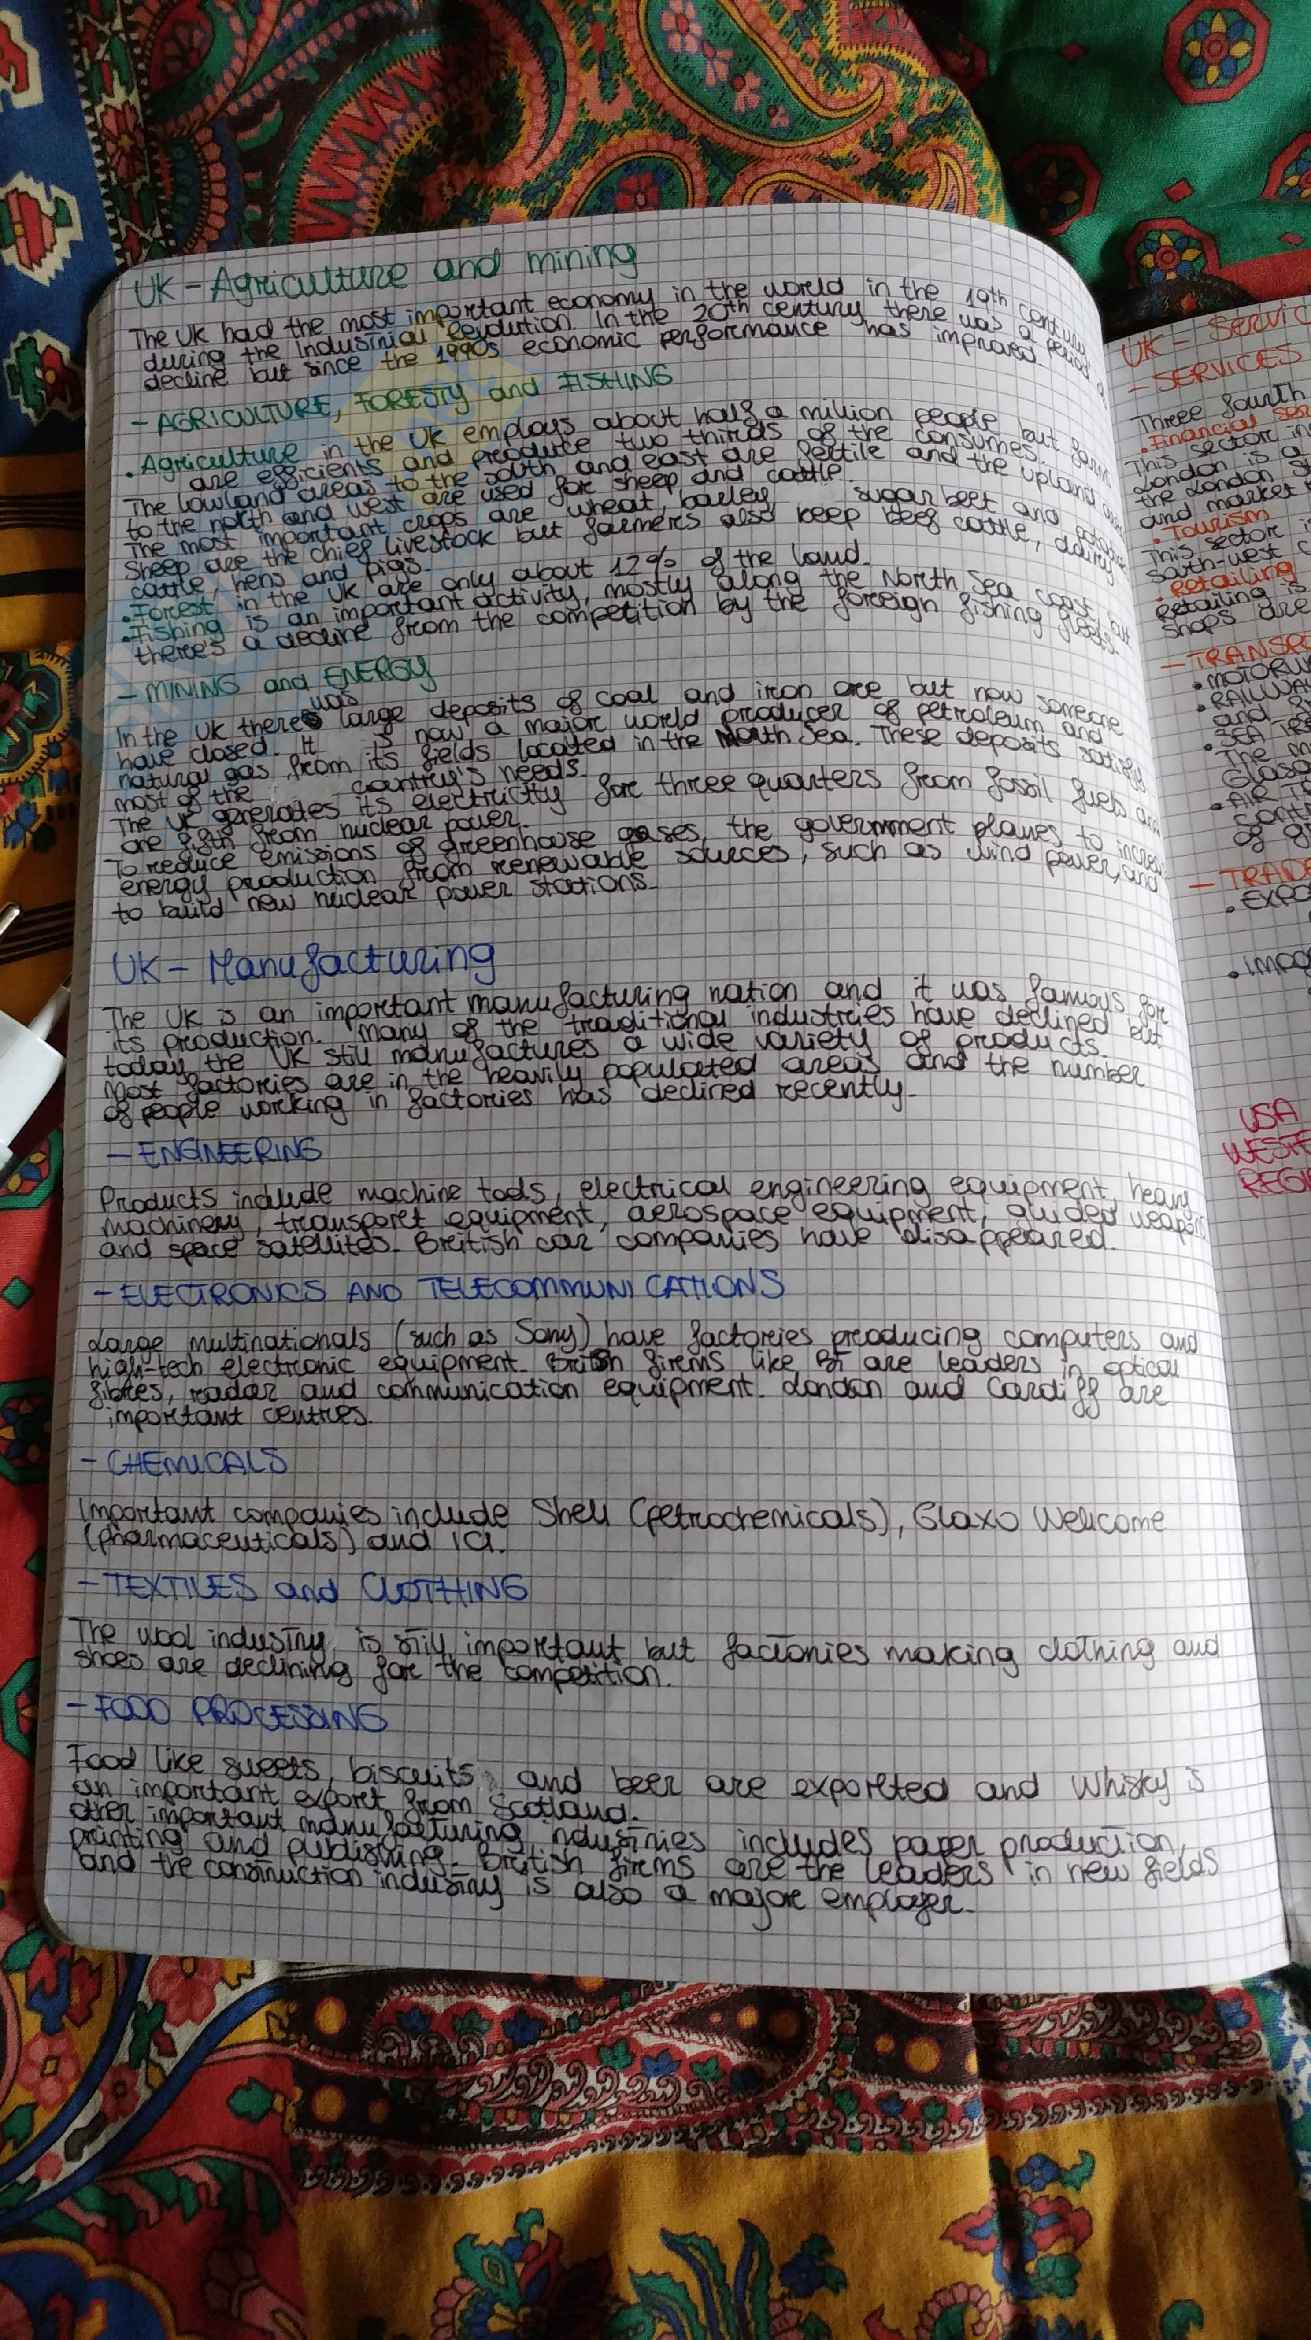 UK - Agriculture and mining
The UK had the most important economy in the world in the 19th century
during the Industrial Revolution. In the 20th century there was a period of
decline but since the 1990s economic performance has improved.
- AGRICULTURE, FORESTY and FISHING
. Agriculture in the UK employs about half a million people but farms
are efficients and produce two thirds of the consumes.
The lowland areas to the south and east are fertile and the upland areas
to the north and west are used for sheep and cattle.
The most important crops are wheat, barley sugar beet and potatoes
Sheep are the chief livestock but farmers also keep beef cattle, dairy
cattle, hens and pigs.
.Forest in the UK are only about 12% of the land.
.Fishing is an important activity, mostly along the North Sea coast but
there's a decline from the competition by the foreign fishing fleets.
- MINING and ENERGY
In the UK there was large deposits of coal and iron ore but now someone
have closed. It is now a major world producer of petroleum and
natural gas from its fields located in the North Sea. These deposits satisfy
most of the country's needs.
The UK generates its electricity for three quarters from fossil fuels and
one from nuclear power.
To reduce emissions of greenhouse gases, the government planes to increase
energy production from renewable sources, such as wind power, and
to build new nuclear power stations.
UK - Manufacturing
The UK is an important manufacturing nation and it was famoys for
its production. Many of the traditional industries have declined but
today the UK still manufactures a wide variety of products.
Most factories are in the heavily populated areas and the number
of people working in factories has declined recently.
- ENGINEERING
Products include machine tools, electrical engineering equipment, heavy
machinery, transport equipment, aerospace equipment, guided weapons
and space satellites. British car companies have disappeared.
- ELECTRONICS AND TELECOMMUNICATIONS
Large multinationals (such as Sony) have factories producing computers and
high-tech electronic equipment. British firms like BT are leaders in optical
fibres, radar and communication equipment. London and Cardiff are
important centres.
- CHEMICALS
Important companies include Shell (petrochemicals), Glaxo Wellcome
(pharmaceuticals) and ICI.
- TEXTILES and CLOTHING
The wool industry is still important but factories making clothing and
shoes are declining for the competition.
- FOOD PROCESSING
Food like sweets, biscuits and beer are exported and Whisky is
an important export from Scotland.
other important manufacturing industries includes paper production,
printing and publishing. British firms are the leaders in new fields
and the construction industry is also a major employer.
UK - Servic
- SERVICES
Three fourth
.Financial ser
This sector in
London is a
the London S
and market
.Tourism
This sector i
south-west c
.Retailing
Retailing is
shops are
- TRANSP
. MOTORW
. RAILWA
and
. SEA TR
The m
Glasg
. AIR T
cont
of g
- TRADE
. EXPO
. IMPO
USA
WESTE
REGI